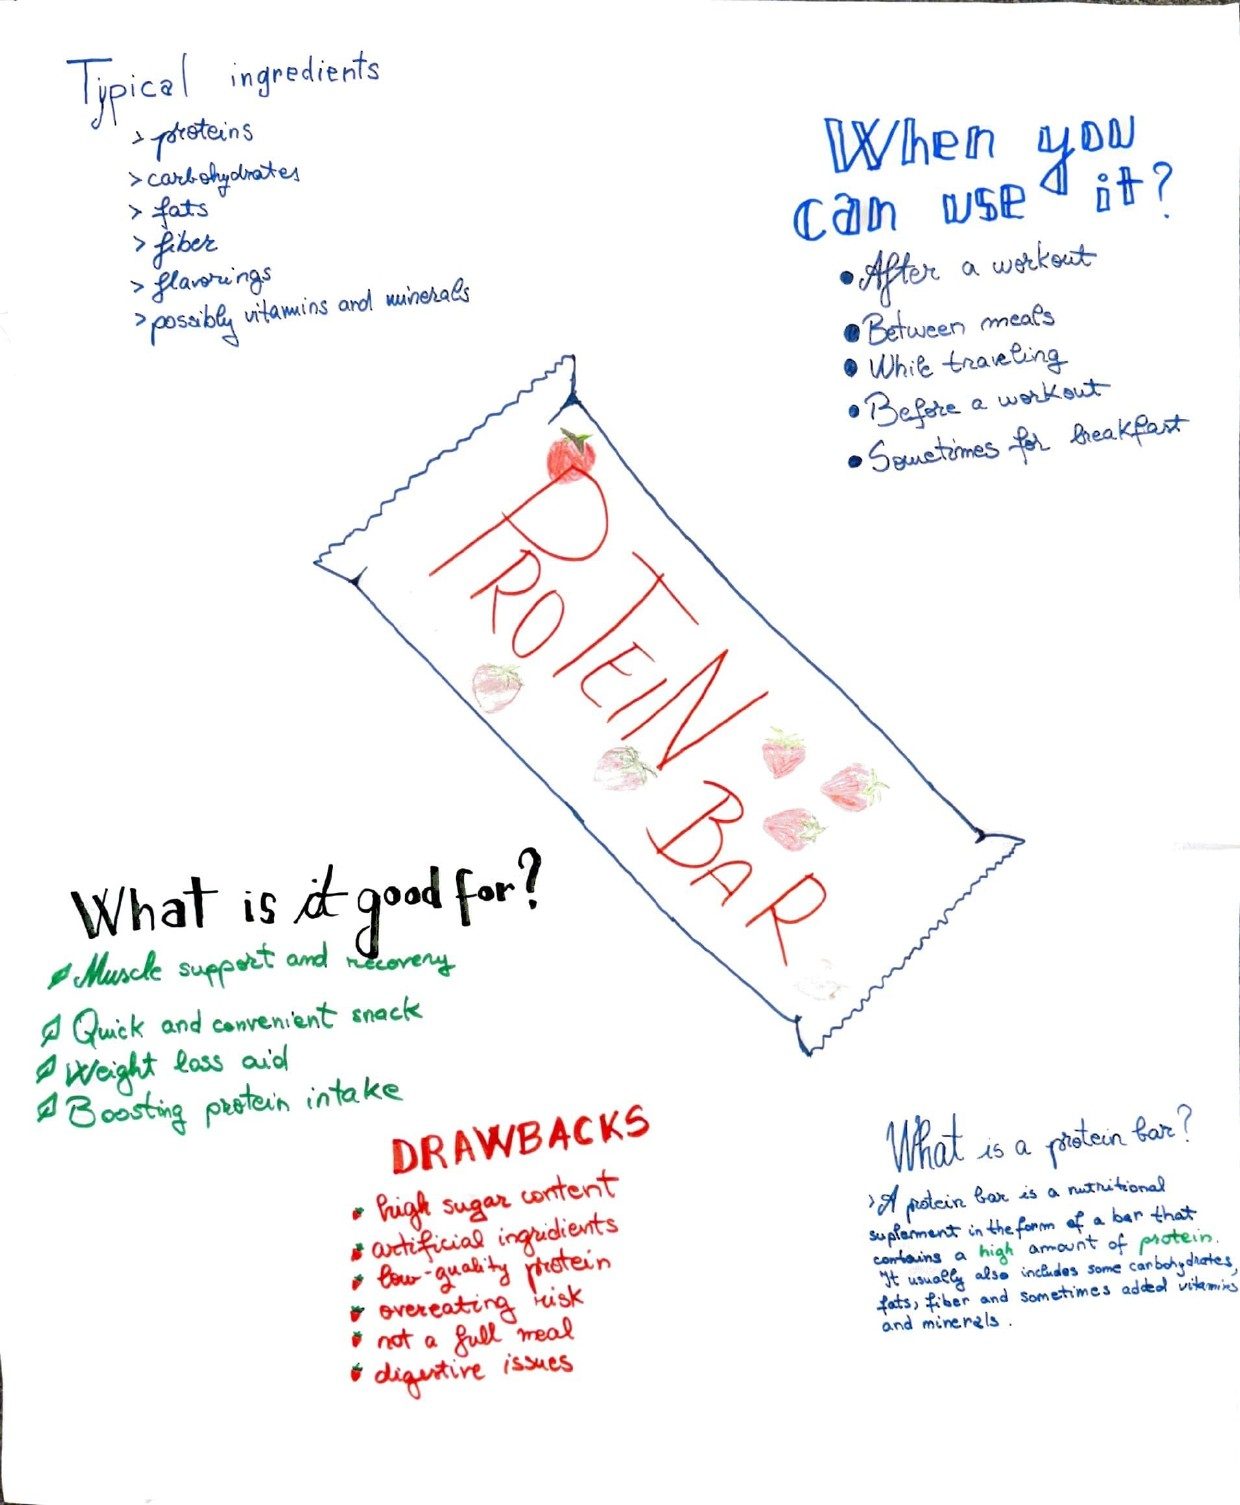 Typical ingredients
> proteins
> carbohydrates
> fats
> fiber
> flavorings
> possibly vitamins and minerals
When you
can use it?
• After a workout
• Between meals
• While traveling
• Before a workout
• Sometimes for breakfast
PROTEIN BAR
What is it good for?
Muscle support and recovery
Quick and convenient snack
Weight loss aid
Boosting protein intake
DRAWBACKS
high sugar content
artificial ingridients
low-quality protein
overeating risk
not a full meal
digestive issues
What is a protein bar?
> A protein bar is a nutritional
suplement in the form of a bar that
contains a high amount of protein.
It usually also includes some carbohydrates,
fats, fiber and sometimes added vitamins
and minerals.